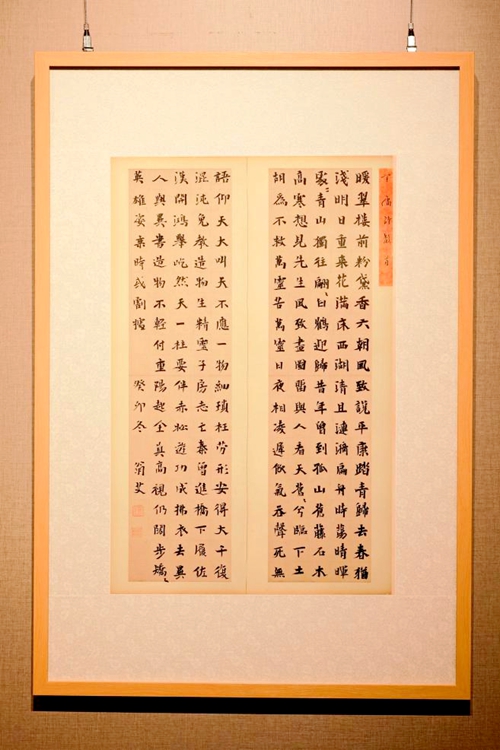 暖翠樓前粉黛香六朝風致說平康踏青歸去春猶
淺明日重來花滿床西湖清且漣漪扁舟時蕩晴暉
處〻青山獨往翩〻白鶴迎歸昔年曾到孤山蒼藤古木
高寒想見先生風致畫圖留與人看天蒼〻兮臨下土
胡為不救萬靈苦萬靈日夜相凌遲飲氣吞聲死無
語仰天大叫天不應一物細瑣枉勞形安得大千復
混沌免教造物生精靈子房志亡秦曾進橋下履佐
漢開鴻舉屹然天一柱要伴赤松遊功成拂衣去異
人與異書造物不輕付重陽起全真高視仍闊步矯〻
英雄姿乘時或割據 癸卯冬